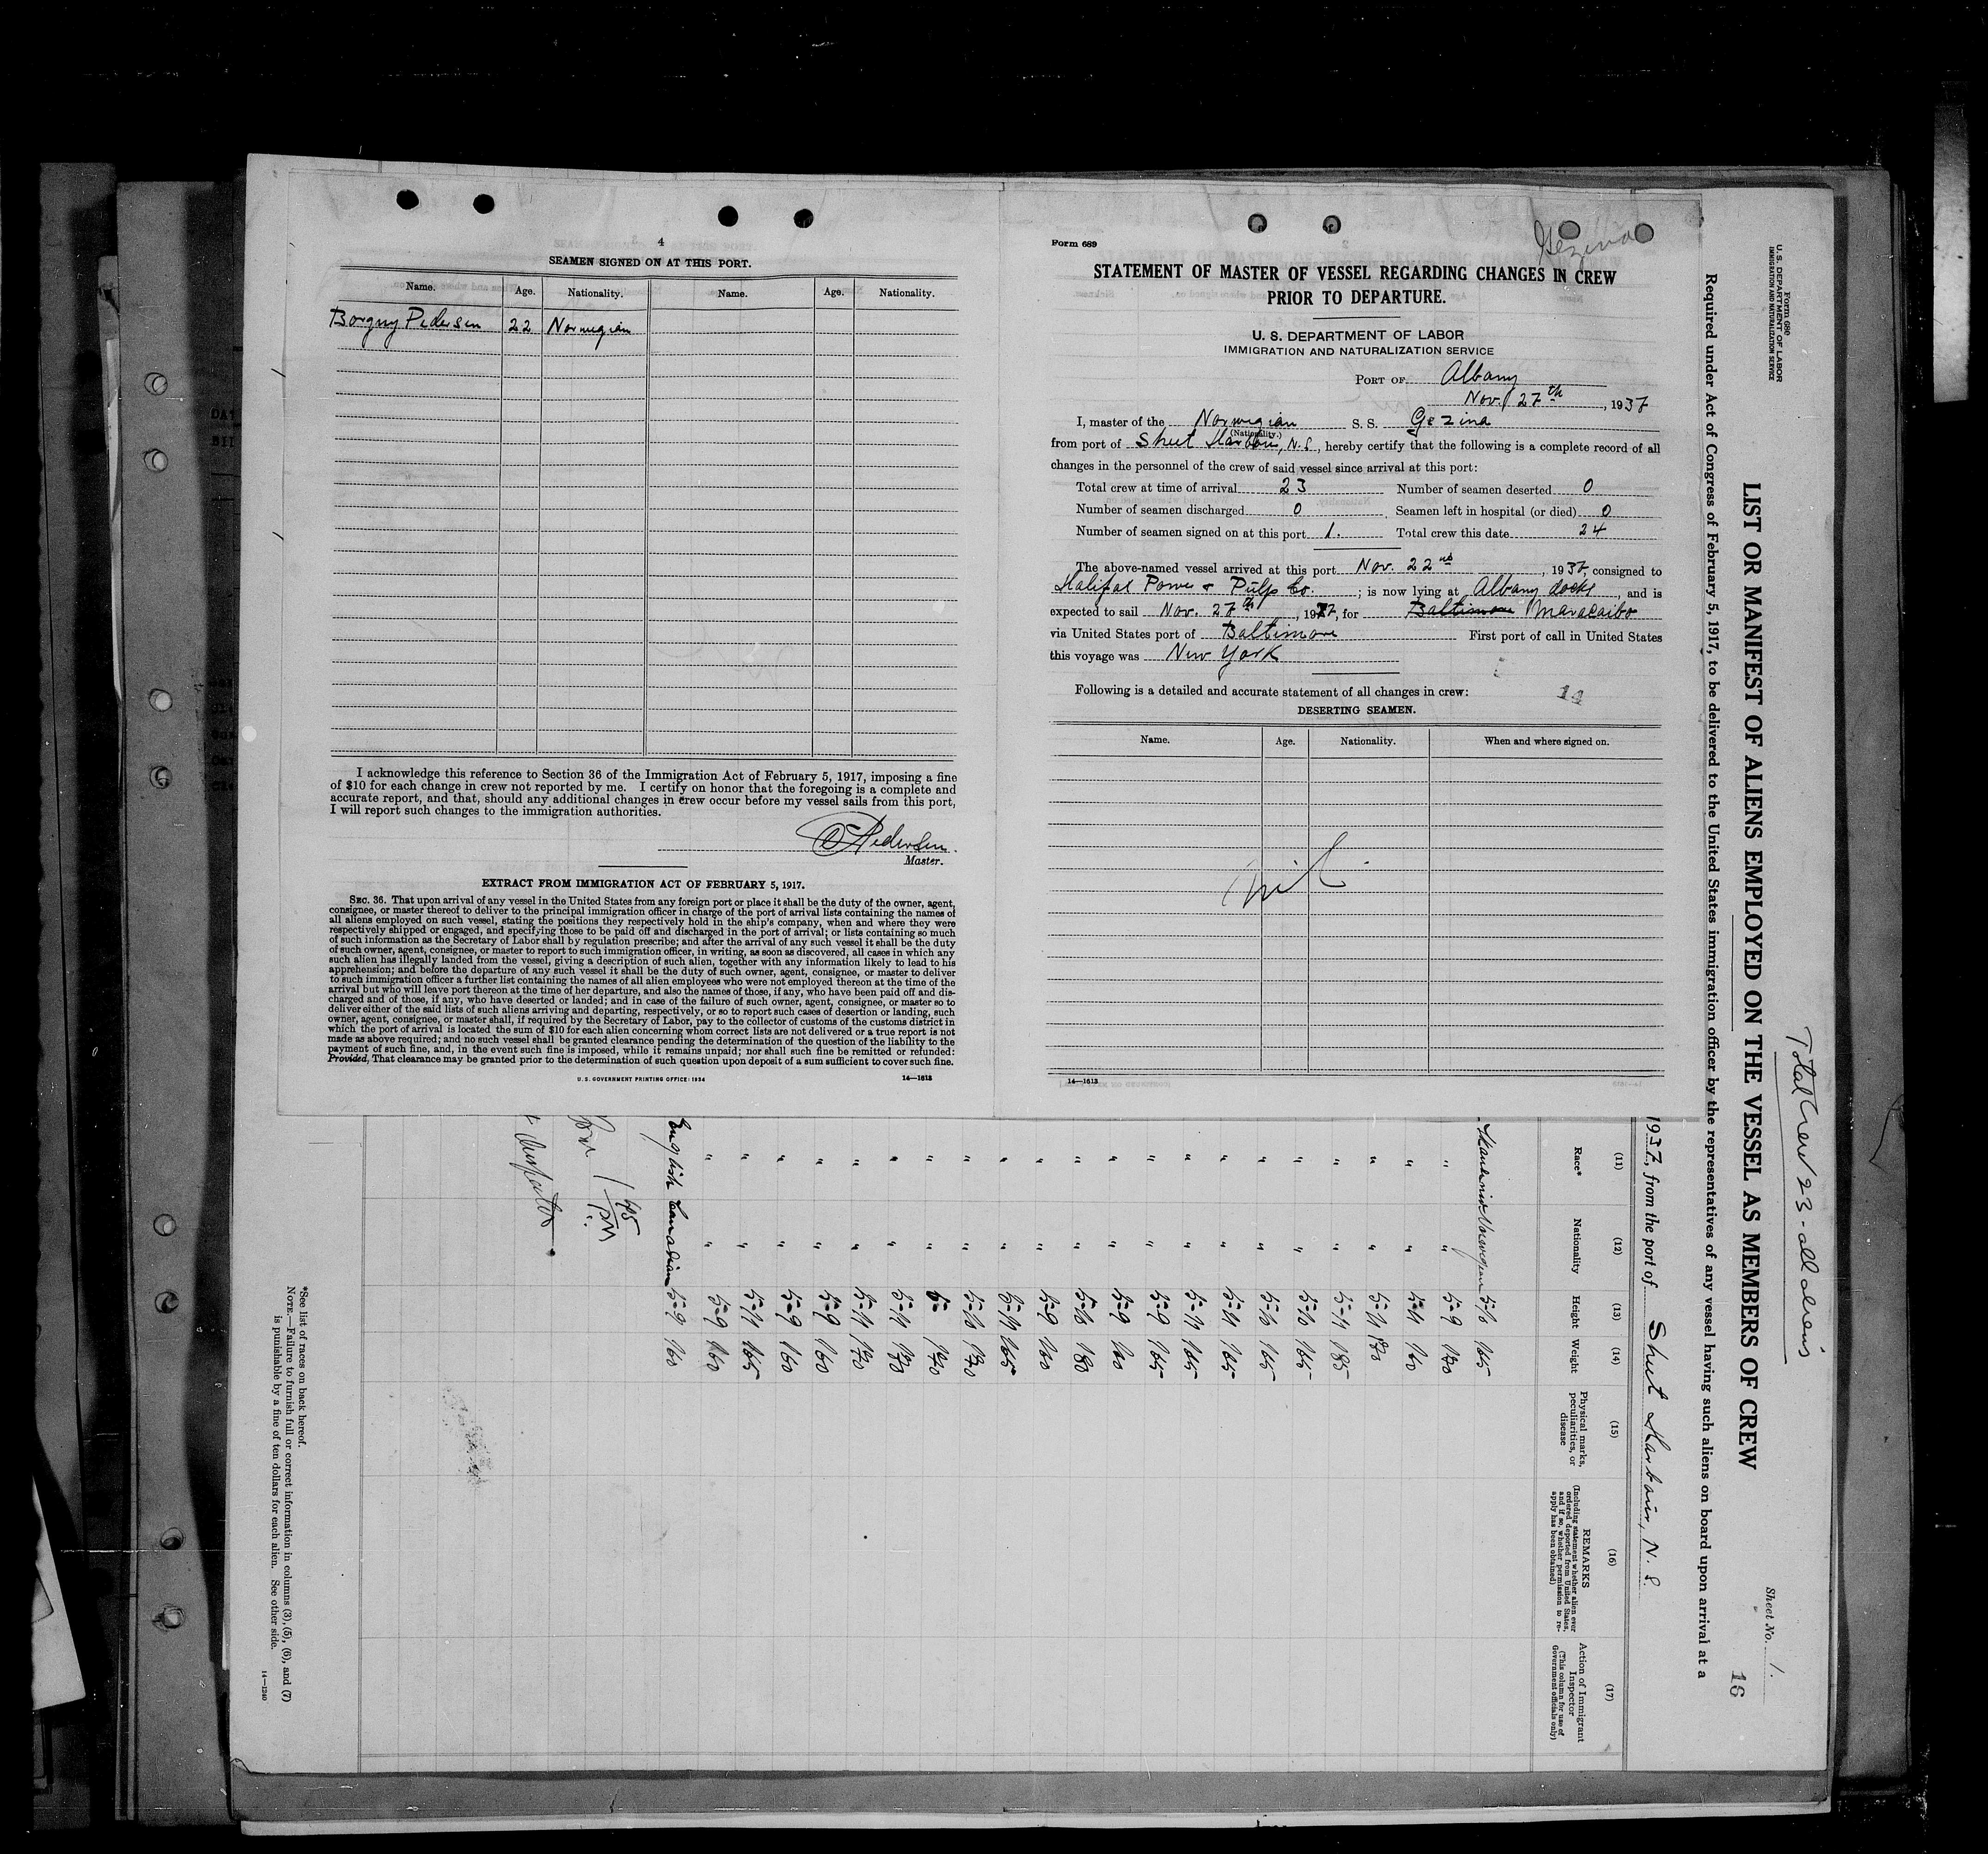 4
SEAMEN SIGNED ON AT THIS PORT.
Name. Age. Nationality. Name. Age. Nationality.
Borgny Pedersen 22 Norwegian
I acknowledge this reference to Section 36 of the Immigration Act of February 5, 1917, imposing a fine
of $10 for each change in crew not reported by me. I certify on honor that the foregoing is a complete and
accurate report, and that, should any additional changes in crew occur before my vessel sails from this port,
I will report such changes to the immigration authorities.
Pedersen.
Master.
EXTRACT FROM IMMIGRATION ACT OF FEBRUARY 5, 1917.
SEC. 36. That upon arrival of any vessel in the United States from any foreign port or place it shall be the duty of the owner, agent,
consignee, or master thereof to deliver to the principal immigration officer in charge of the port of arrival lists containing the names of
all aliens employed on such vessel, stating the positions they respectively hold in the ship's company, when and where they were
respectively shipped or engaged, and specifying those to be paid off and discharged in the port of arrival; or lists containing so much
of such information as the Secretary of Labor shall by regulation prescribe; and after the arrival of any such vessel it shall be the duty
of such owner, agent, consignee, or master to report to such immigration officer, in writing, as soon as discovered, all cases in which any
such alien has illegally landed from the vessel, giving a description of such alien, together with any information likely to lead to his
apprehension; and before the departure of any such vessel it shall be the duty of such owner, agent, consignee, or master to deliver
to such immigration officer a further list containing the names of all alien employees who were not employed thereon at the time of the
arrival but who will leave port thereon at the time of her departure, and also the names of those, if any, who have been paid off and dis-
charged and of those, if any, who have deserted or landed; and in case of the failure of such owner, agent, consignee, or master so to
deliver either of the said lists of such aliens arriving and departing, respectively, or so to report such cases of desertion or landing, such
owner, agent, consignee, or master shall, if required by the Secretary of Labor, pay to the collector of customs of the customs district in
which the port of arrival is located the sum of $10 for each alien concerning whom correct lists are not delivered or a true report is not
made as above required; and no such vessel shall be granted clearance pending the determination of the question of the liability to the
payment of such fine, and, in the event such fine is imposed, while it remains unpaid; nor shall such fine be remitted or refunded:
Provided, That clearance may be granted prior to the determination of such question upon deposit of a sum sufficient to cover such fine.
U. S. GOVERNMENT PRINTING OFFICE: 1934 14—1613
Gezina
Form 689
STATEMENT OF MASTER OF VESSEL REGARDING CHANGES IN CREW
PRIOR TO DEPARTURE.
U. S. DEPARTMENT OF LABOR
IMMIGRATION AND NATURALIZATION SERVICE
PORT OF Albany
Nov. 27th, 1937
I, master of the Norwegian S. S. Gezina
(Nationality.)
from port of Sheet Harbour, N.S., hereby certify that the following is a complete record of all
changes in the personnel of the crew of said vessel since arrival at this port:
Total crew at time of arrival 23 Number of seamen deserted 0
Number of seamen discharged 0 Seamen left in hospital (or died) 0
Number of seamen signed on at this port 1. Total crew this date 24
The above-named vessel arrived at this port Nov. 22nd, 1937, consigned to
Halifax Power & Pulp Co. ; is now lying at Albany docks, and is
expected to sail Nov. 27th, 1937, for Baltimore Maracaibo
via United States port of Baltimore First port of call in United States
this voyage was New York
Following is a detailed and accurate statement of all changes in crew:
14
DESERTING SEAMEN.
Name. Age. Nationality. When and where signed on.
Nil
14—1613
Form 680
U. S. DEPARTMENT OF LABOR
IMMIGRATION AND NATURALIZATION SERVICE
Total Crew 23 - all aliens
Sheet No. 1.
16
LIST OR MANIFEST OF ALIENS EMPLOYED ON THE VESSEL AS MEMBERS OF CREW
Required under Act of Congress of February 5, 1917, to be delivered to the United States immigration officer by the representatives of any vessel having such aliens on board upon arrival at a
1937, from the port of Sheet Harbour, N. S.
(11) (12) (13) (14) (15) (16) (17)
Race* Nationality Height Weight Physical marks, peculiarities, or disease REMARKS (Including statement whether alien ever ordered deported from United States, and if so, whether permission to re-apply has been obtained) Action of Immigrant Inspector (This column for use of Government officials only)
Scandinav Norwegian 5-10 165
" " 5-9 170
" " 5-11 160
" " 5-11 170
" " 5-11 185
" " 5-10 165
" " 5-10 165
" " 5-11 165
" " 5-11 165
" " 5-9 165
" " 5-9 160
" " 5-10 180
" " 5-9 160
" " 5-11 165
" " 5-10 170
" " 170
" " 5-11 170
" " 5-11 170
" " 5-9 160
" " 5-9 160
" " 5-11 165
" " 5-9 160
English Canadian 5-9 160
1 45
PM
*See list of races on back hereof.
NOTE.—Failure to furnish full or correct information in columns (3), (5), (6), and (7)
is punishable by a fine of ten dollars for each alien. See other side.
14—1240